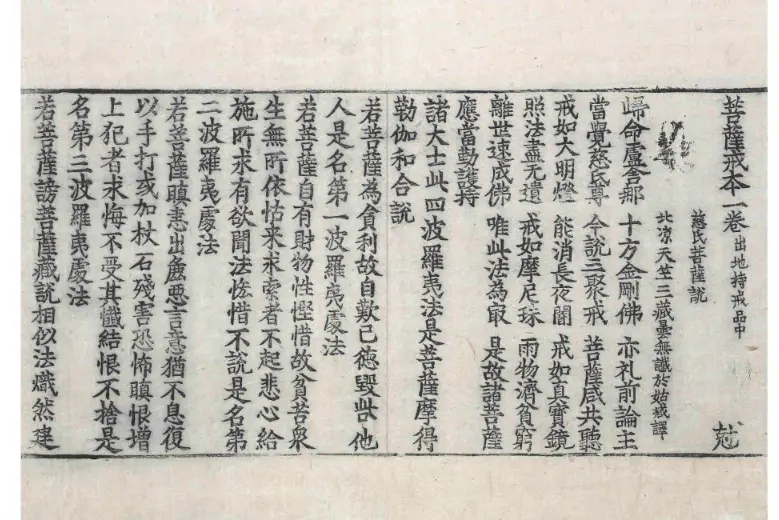 菩薩戒本一卷 出地持戒品中
慈氏菩薩說
北凉天竺三藏曇無讖於姑臧譯
歸命盧舍那 十方金剛佛 亦礼前論主
當覺慈氏尊 今說三聚戒 菩薩咸共聽
戒如大明燈 能消長夜闇 戒如真寶鏡
照法盡无遺 戒如摩尼珠 雨物濟貧窮
離世速成佛 唯此法為㝡 是故諸菩薩
應當勤護持
諸大士此四波羅夷法是菩薩摩得
勒伽和合說
若菩薩為貪利故自歎己德毀呰他
人是名第一波羅夷處法
若菩薩自有財物性慳惜故貧苦衆
生無所依怙来求索者不起悲心給
施所求有欲聞法悋惜不說是名第
二波羅夷處法
若菩薩瞋恚出麁惡言意猶不息復
以手打或加杖石殘害恐怖瞋恨增
上犯者求悔不受其懺結恨不捨是
名第三波羅夷處法
若菩薩謗菩薩藏說相似法熾然建